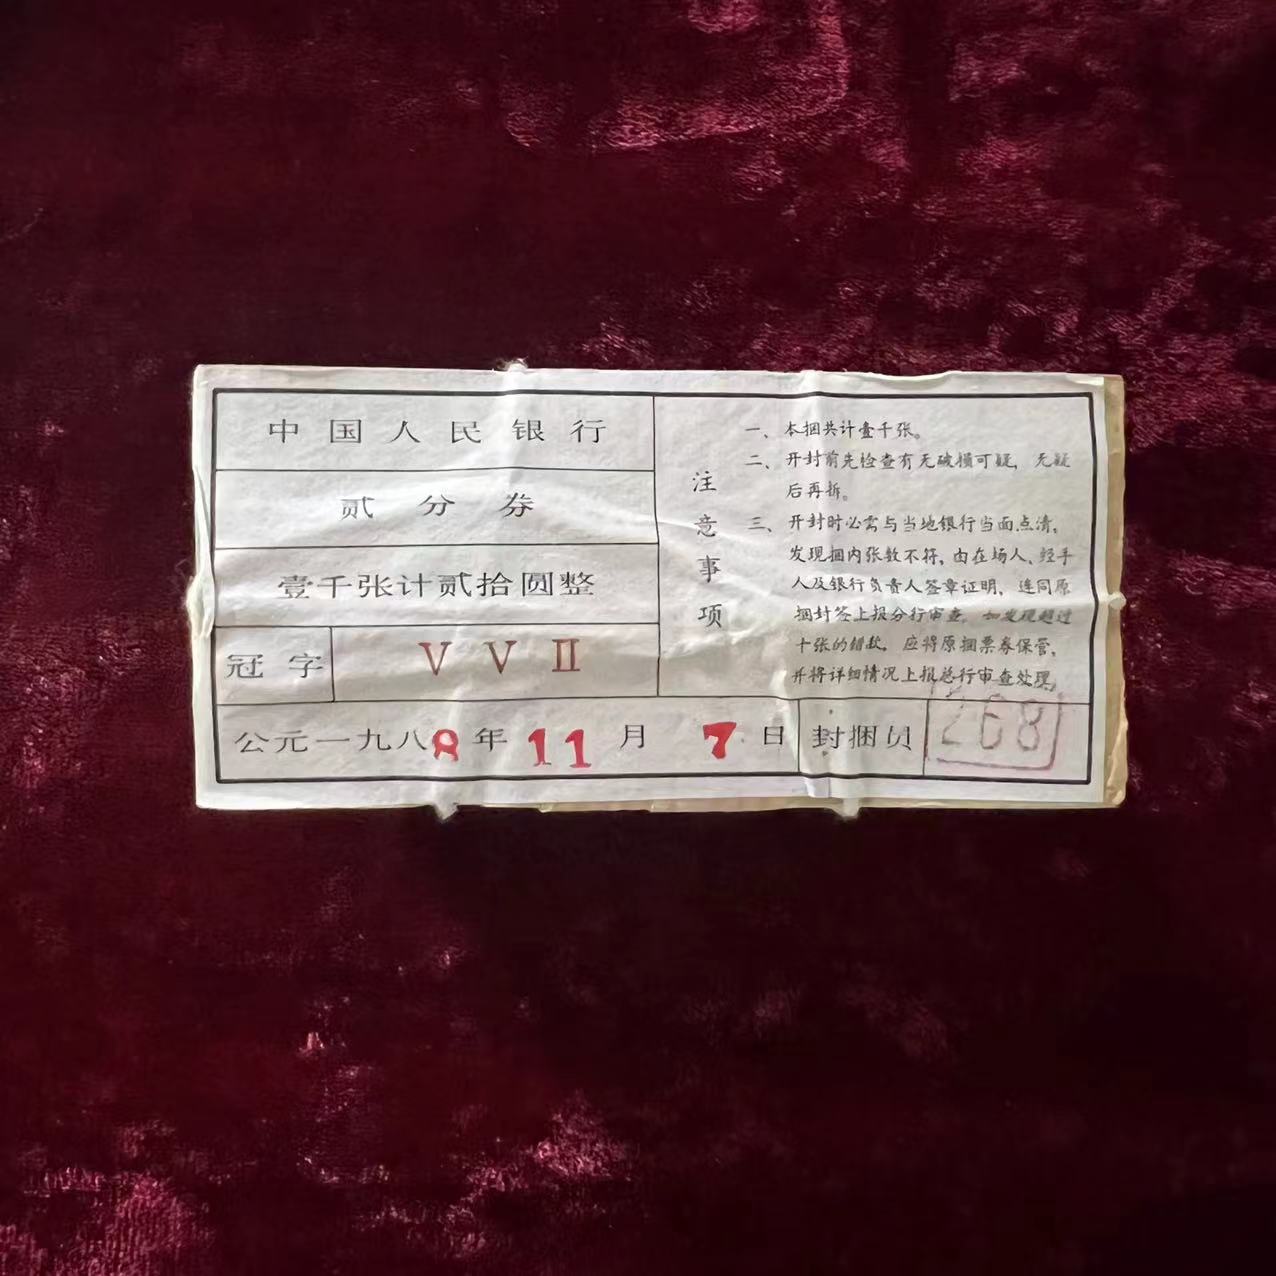 中国人民银行
贰分券
壹千张计贰拾圆整
冠字 V V II
公元一九八8年11月7日 封捆员 268
注意事项
一、本捆共计壹千张。
二、开封前先检查有无破损可疑，无疑
后再拆。
三、开封时必需与当地银行当面点清，
发现捆内张数不符，由在场人、经手
人及银行负责人签章证明，连同原
捆封签上报分行审查。如发现超过
十张的错款，应将原捆票券保管，
并将详细情况上报总行审查处理。